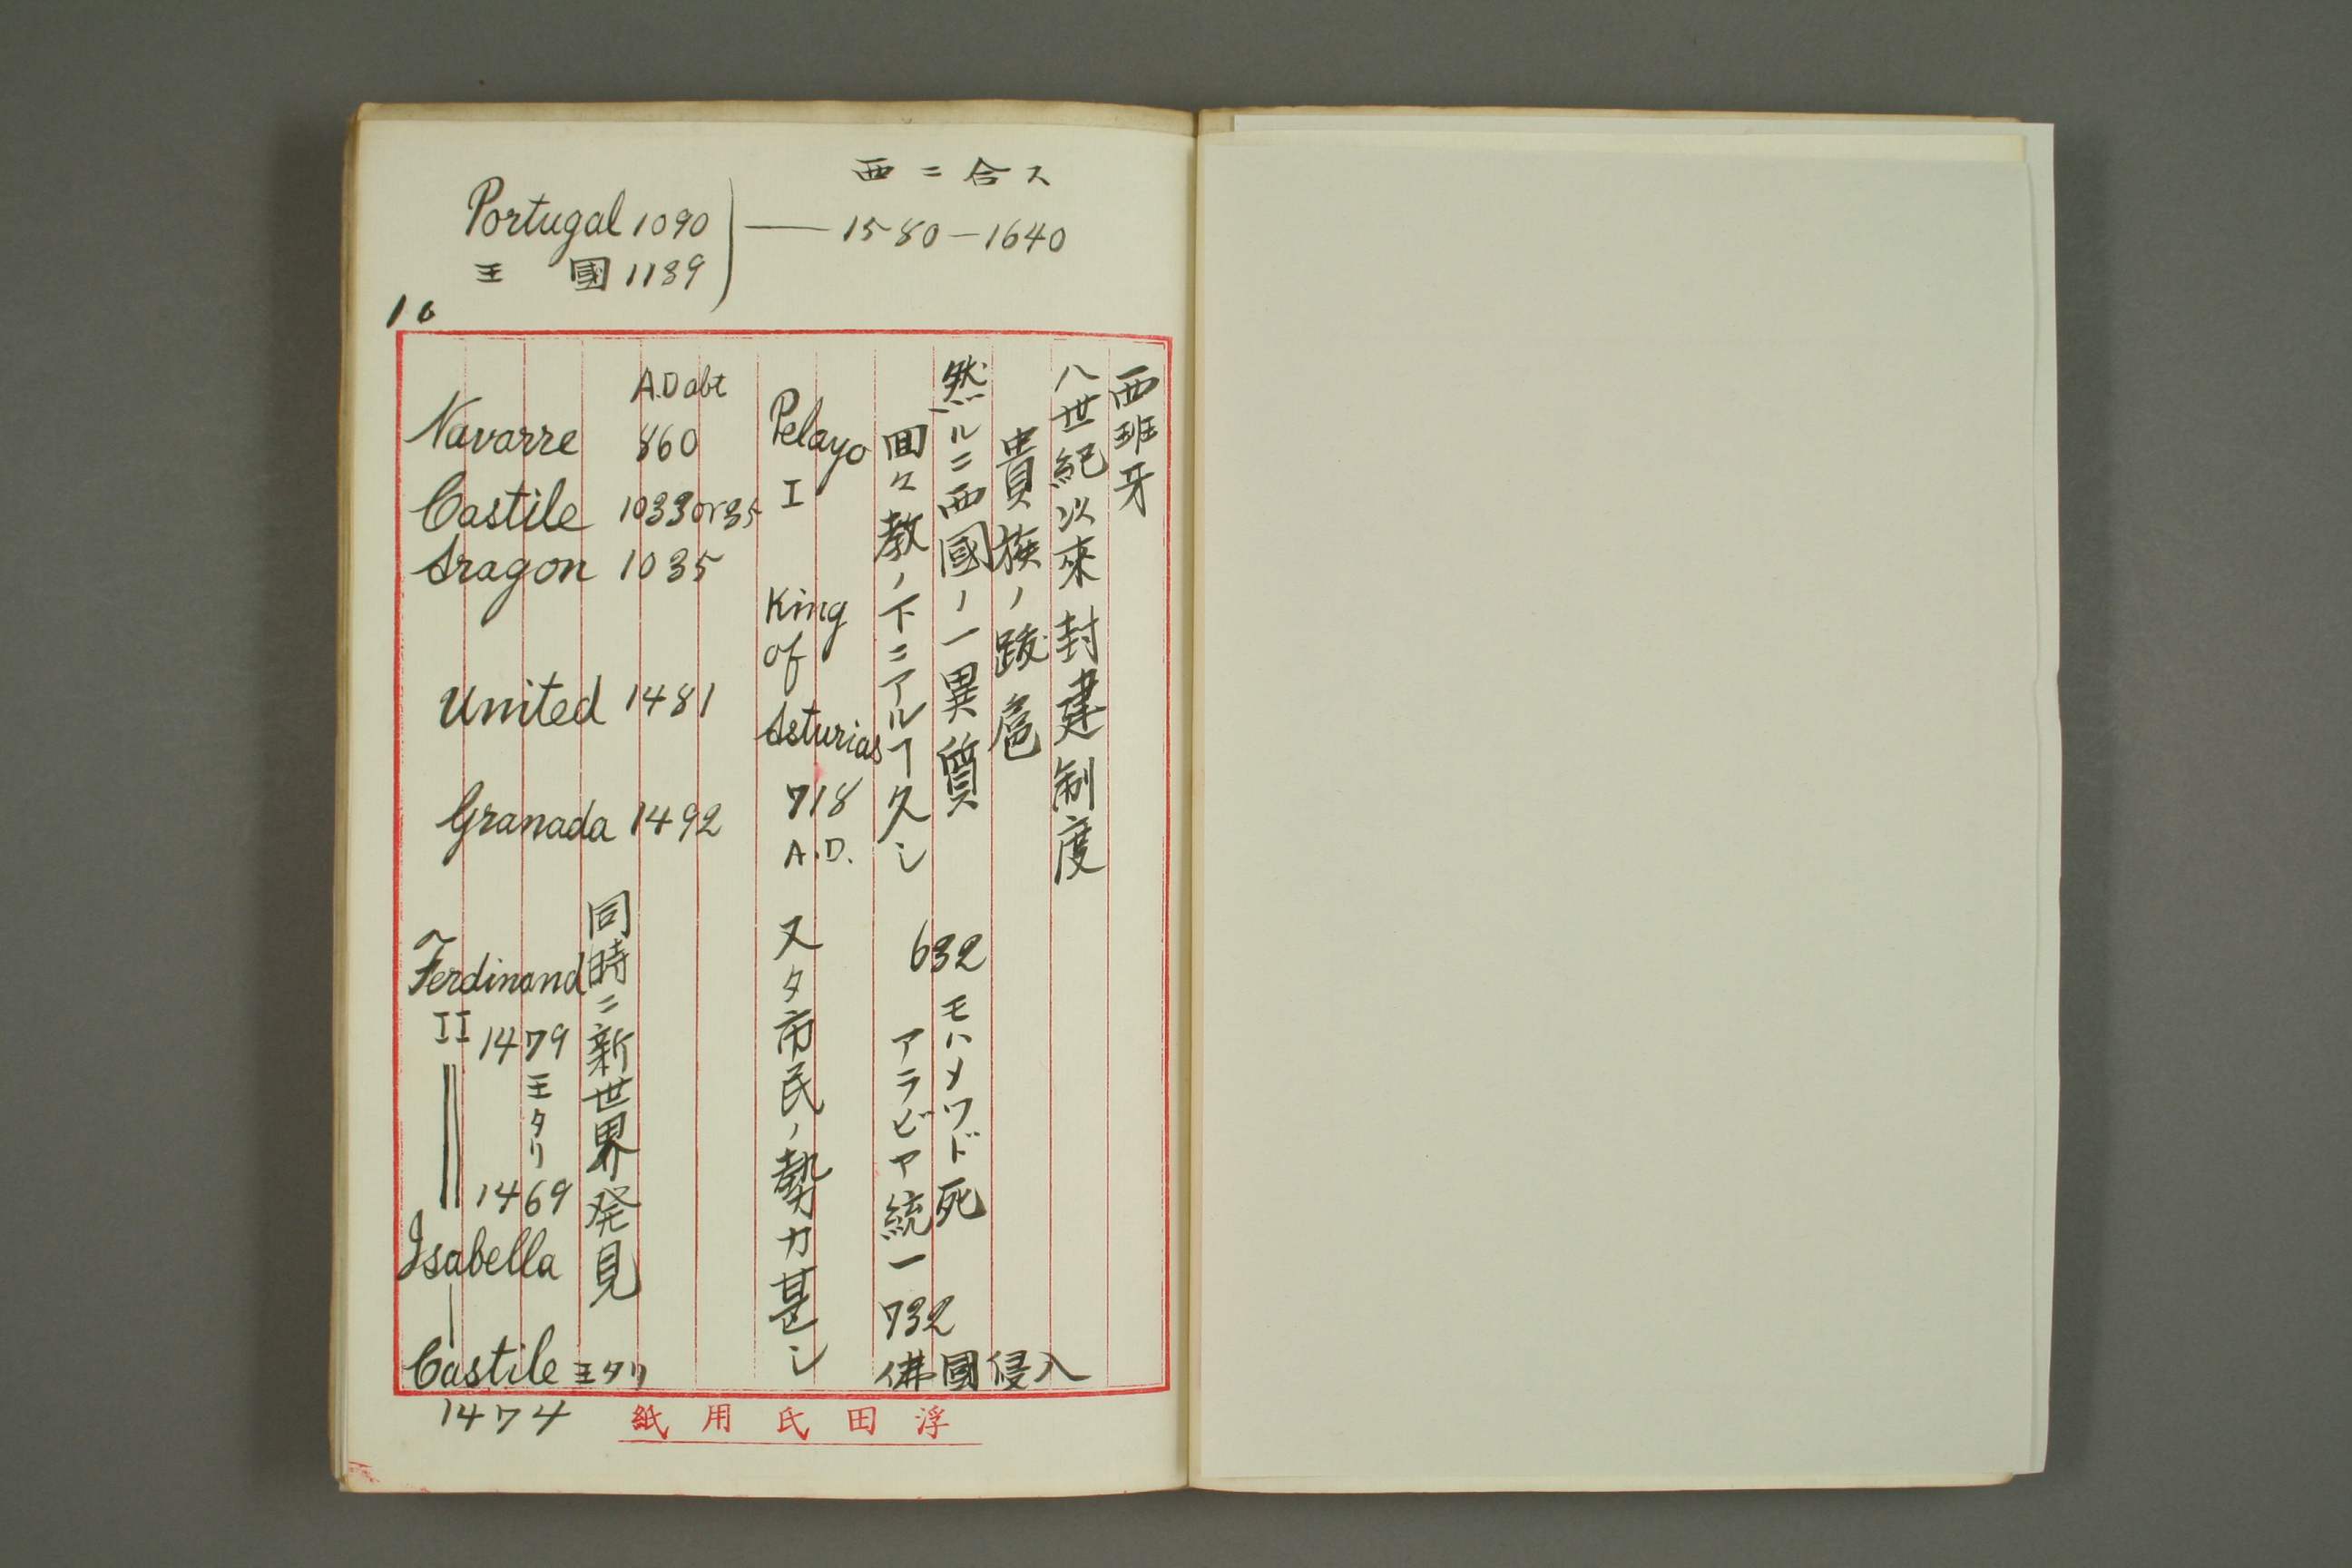 西ニ合ス
Portugal 1090 ― 1580―1640
王國 1139
10
西班牙
八世紀以來封建制度
貴族ノ跋扈
然ルニ西國ノ一異質
回々教ノ下ニアルヿ久シ
632 モハメツド死
アラビヤ統一
732
佛國侵入
Pelayo
I
King
of
Asturias
718
A.D.
又タ市民ノ勢力甚シ
A.D abt
Navarre 860
Castile 1033 or 35
Aragon 1035
United 1481
Granada 1492
同時ニ新世界発見
Ferdinand
II 1479
王タリ
1469
Isabella
Castile 王タリ
1474
浮田氏用紙